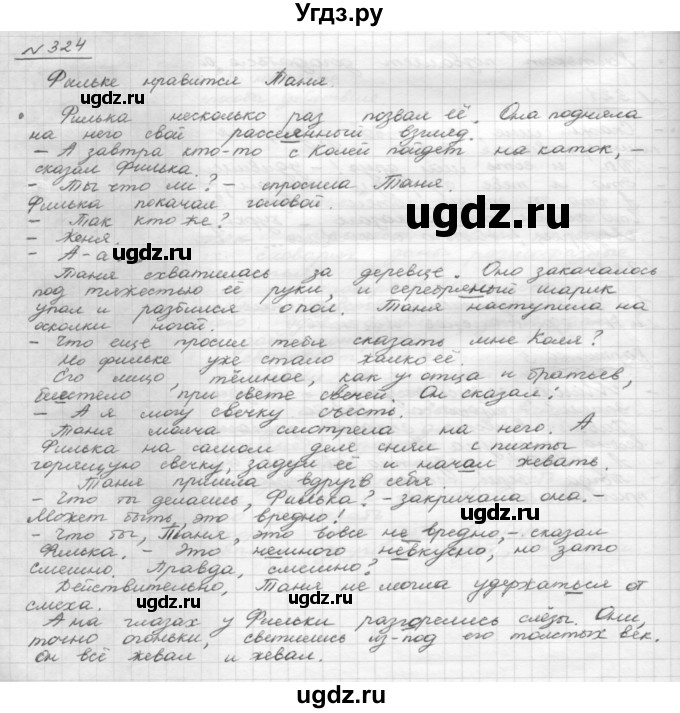 Угдз.ру
№324
Фильке нравится Таня.
Филька несколько раз позвал её. Она подняла
на него свой рассеянный взгляд.
– А завтра кто-то с Колей пойдет на каток, –
сказал Филька.
– Ты что ли? – спросила Таня.
Филька покачал головой.
– Так кто же?
– Женя.
– А-а
Таня схватилась за деревце. Оно закачалось
под тяжестью её руки, и серебряный шарик
упал и разбился о пол. Таня наступила на
осколки ногой.
– Что еще просил тебя сказать мне Коля?
Но Фильке уже стало жалко её.
Его лицо, тёмное, как у отца и братьев,
блестело при свете свечей. Он сказал:
– А я могу свечку съесть.
Таня молча смотрела на него. А
Филька на самом деле снял с пихты
горящую свечку, задул её и начал жевать.
Таня пришла вдруг в себя.
– Что ты делаешь, Филька? – закричала она. –
Может быть, это вредно!
– Что ты, Таня, это вовсе не вредно, – сказал
Филька. – Это немного невкусно, но зато
смешно. Правда, смешно?
Действительно, Таня не могла удержаться от
смеха.
А на глазах у Фильки разгорелись слёзы. Они,
точно огоньки, светились из-под его толстых век.
Он всё жевал и жевал.
ugdz.ru
ugdz.ru
ugdz.ru
ugdz.ru
ugdz.ru
ugdz.ru
ugdz.ru
ugdz.ru
ugdz.ru
ugdz.ru
ugdz.ru